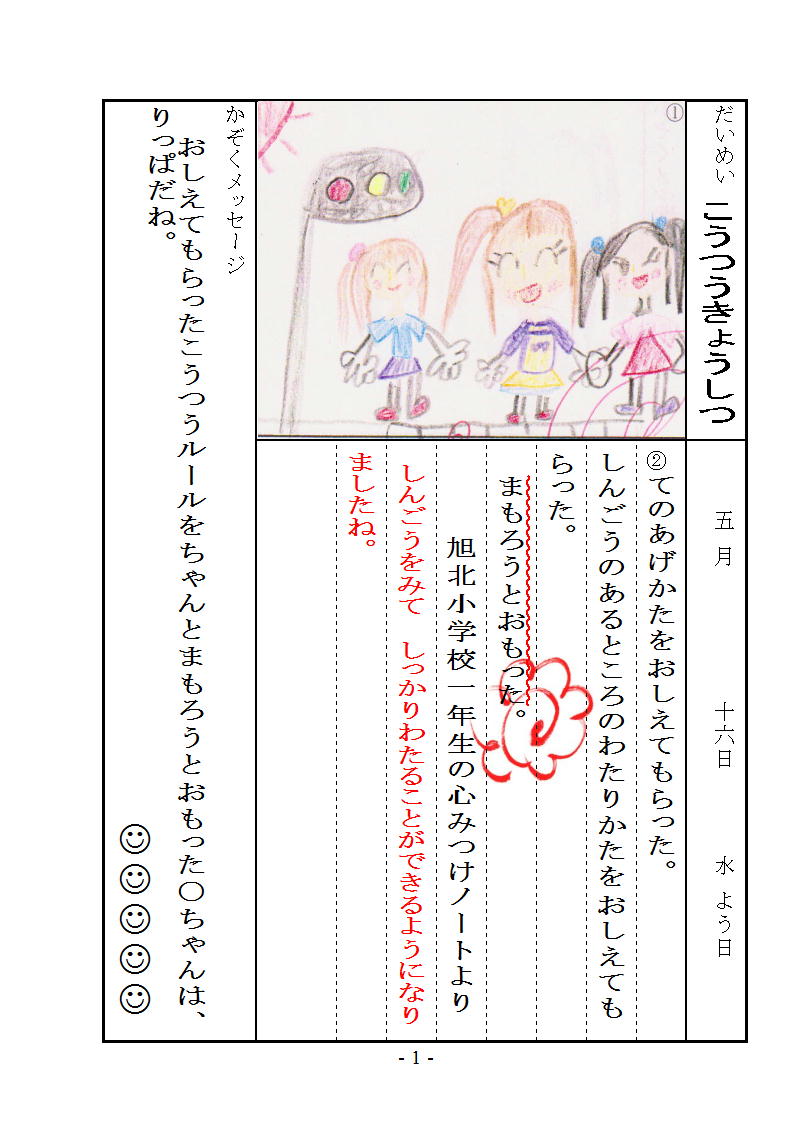 だいめい　こうつうきょうしつ
五月　十六日　水よう日
①
②てのあげかたをおしえてもらった。
しんごうのあるところのわたりかたをおしえても
らった。
まもろうとおもった。
旭北小学校一年生の心みつけノートより
しんごうをみて　しっかりわたることができるようになり
ましたね。
かぞくメッセージ
おしえてもらったこうつうルールをちゃんとまもろうとおもった〇ちゃんは、
りっぱだね。
- 1 -